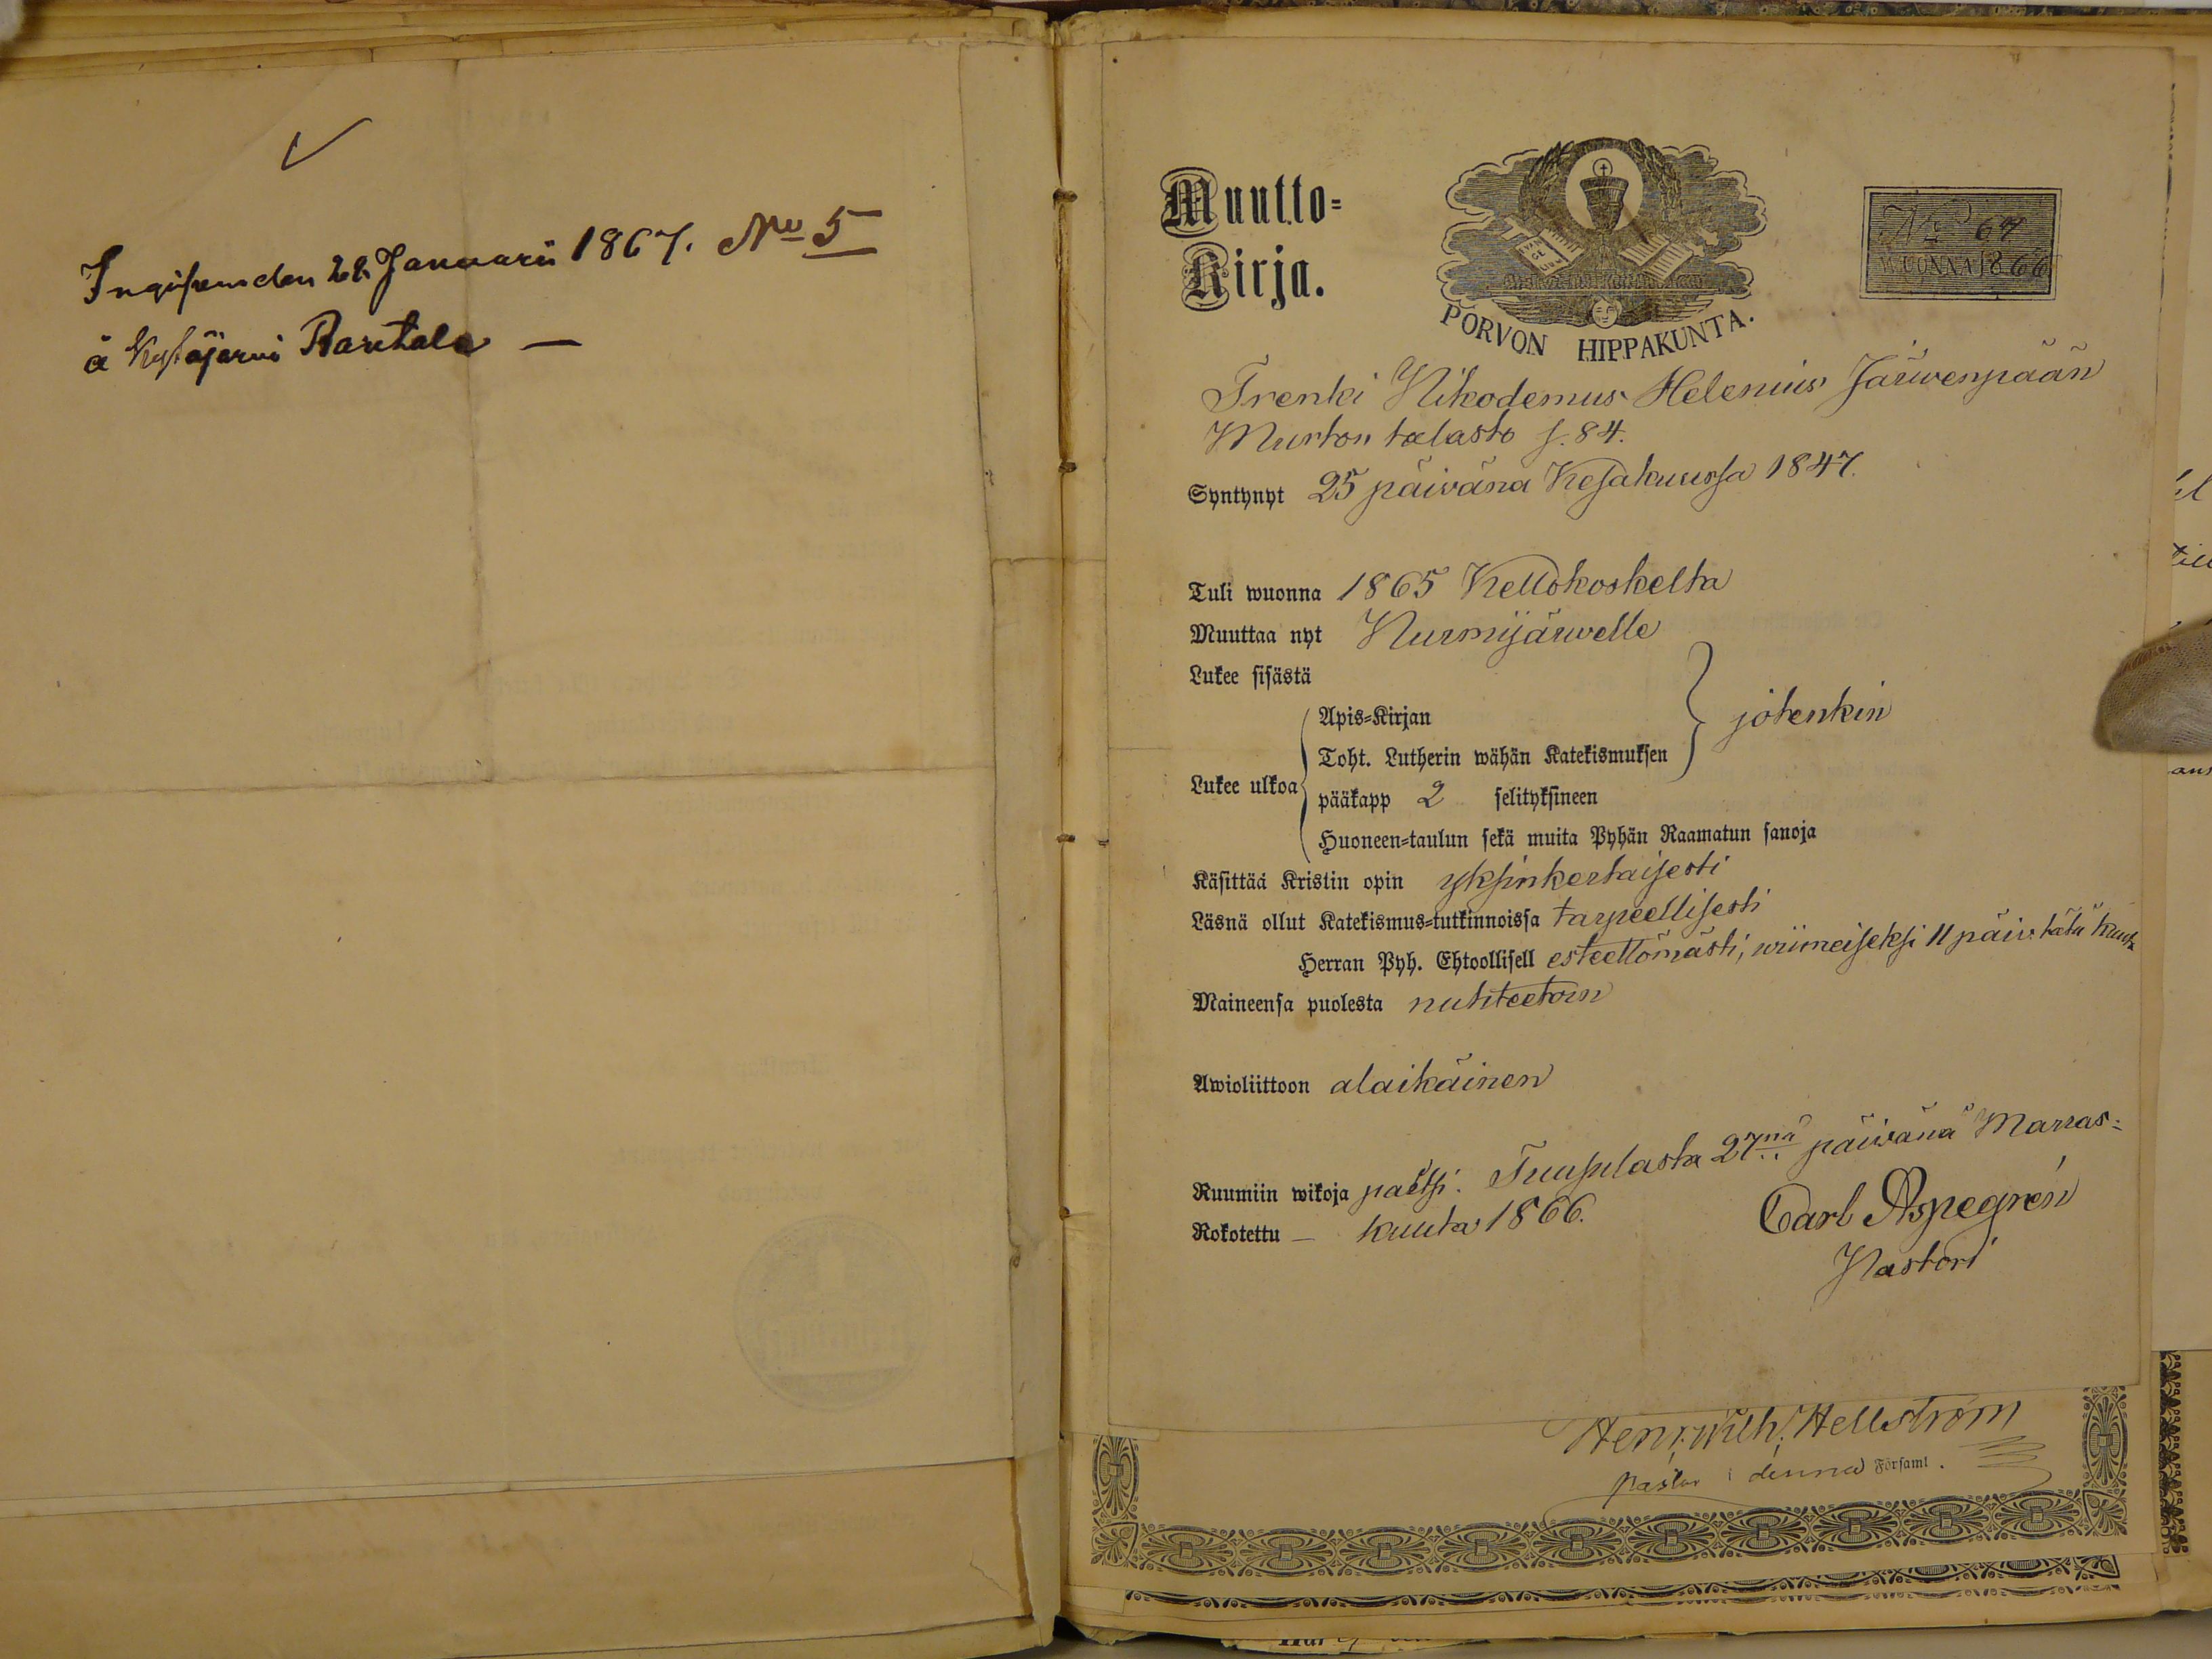 Ingifven den 28 Januarii 1867. No 5
å Kytäjervi Rantala —
Muutto=
Kirja.
EVAN
GE
LIUM
PORVON HIPPAKUNTA.
No 64
WUONNA 1866
Trenki Nikodemus Helenius Järwenpään
Murton talosto s. 84.
Syntynyt 25 päivänä Kesäkuussa 1847.
Tuli wuonna 1865 Kellokoskelta
Muuttaa nyt Nurmijärwelle
Lukee sisästä
Apis=Kirjan
Toht. Lutherin wähän Katekismuksen
jotenkin
Lukee ulkoa
pääkapp 2 selityksineen
Huoneen=taulun sekä muita Pyhän Raamatun sanoja
Käsittää Kristin opin yksinkertaisesti
Läsnä ollut Katekismus=tutkinnoissa tarpeellisesti
Herran Pyh. Ehtoollisell esteettömästi, wiimeiseksi 11 päiv. tätä kuuta
Maineensa puolesta nuhteetoin
Awioliittoon alaikäinen
Ruumiin wikoja paitsi. Tuusulasta 27nä päivänä Marras=
Rokotettu — kuuta 1866.
Carl Aspegrén
Pastori
Henr. Wilh. Hellström
Pastor i denna Församl.